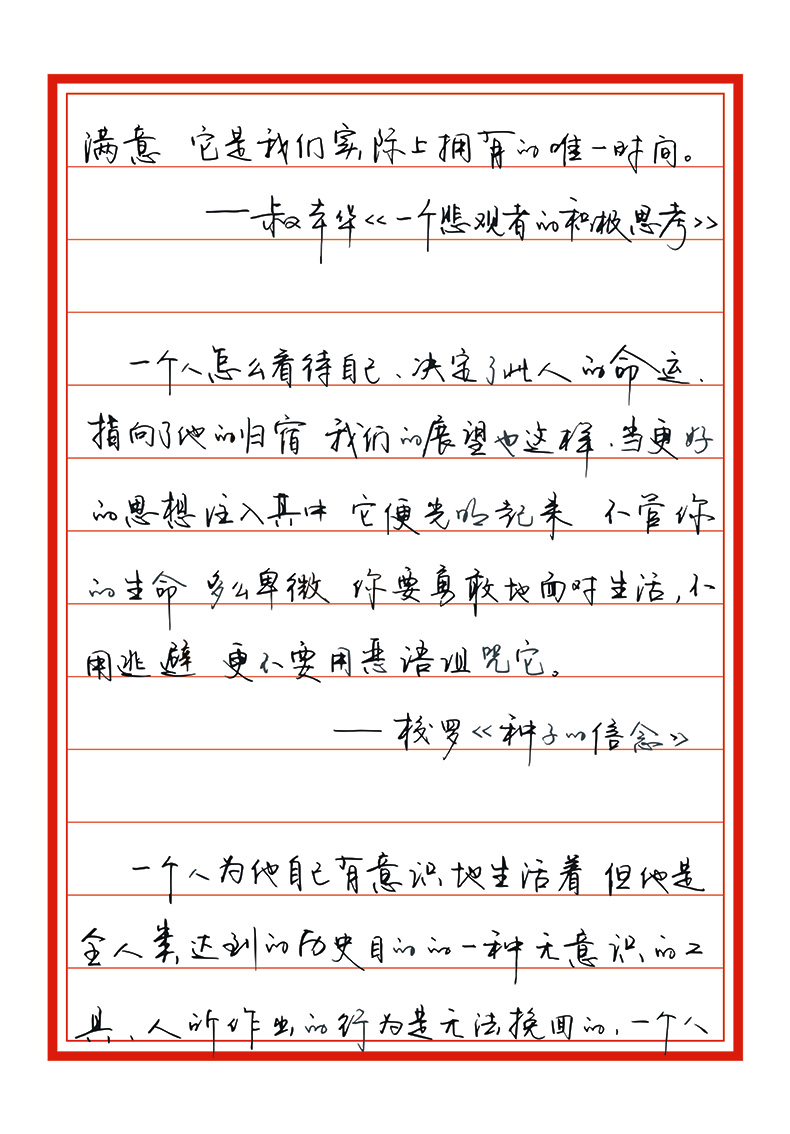 满意 它是我们实际上拥有的唯一时间。
——叔本华《一个悲观者的积极思考》
一个人怎么看待自己、决定了此人的命运、
指向了他的归宿 我们的展望也这样、当更好
的思想注入其中 它便光明起来 不管你
的生命多么卑微 你要勇敢地面对生活,不
用逃避 更不要用恶语诅咒它。
——梭罗《种子的信念》
一个人为他自己有意识地生活着 但他是
全人类达到的历史目的的一种无意识的工
具、人所作出的行为是无法挽回的、一个人